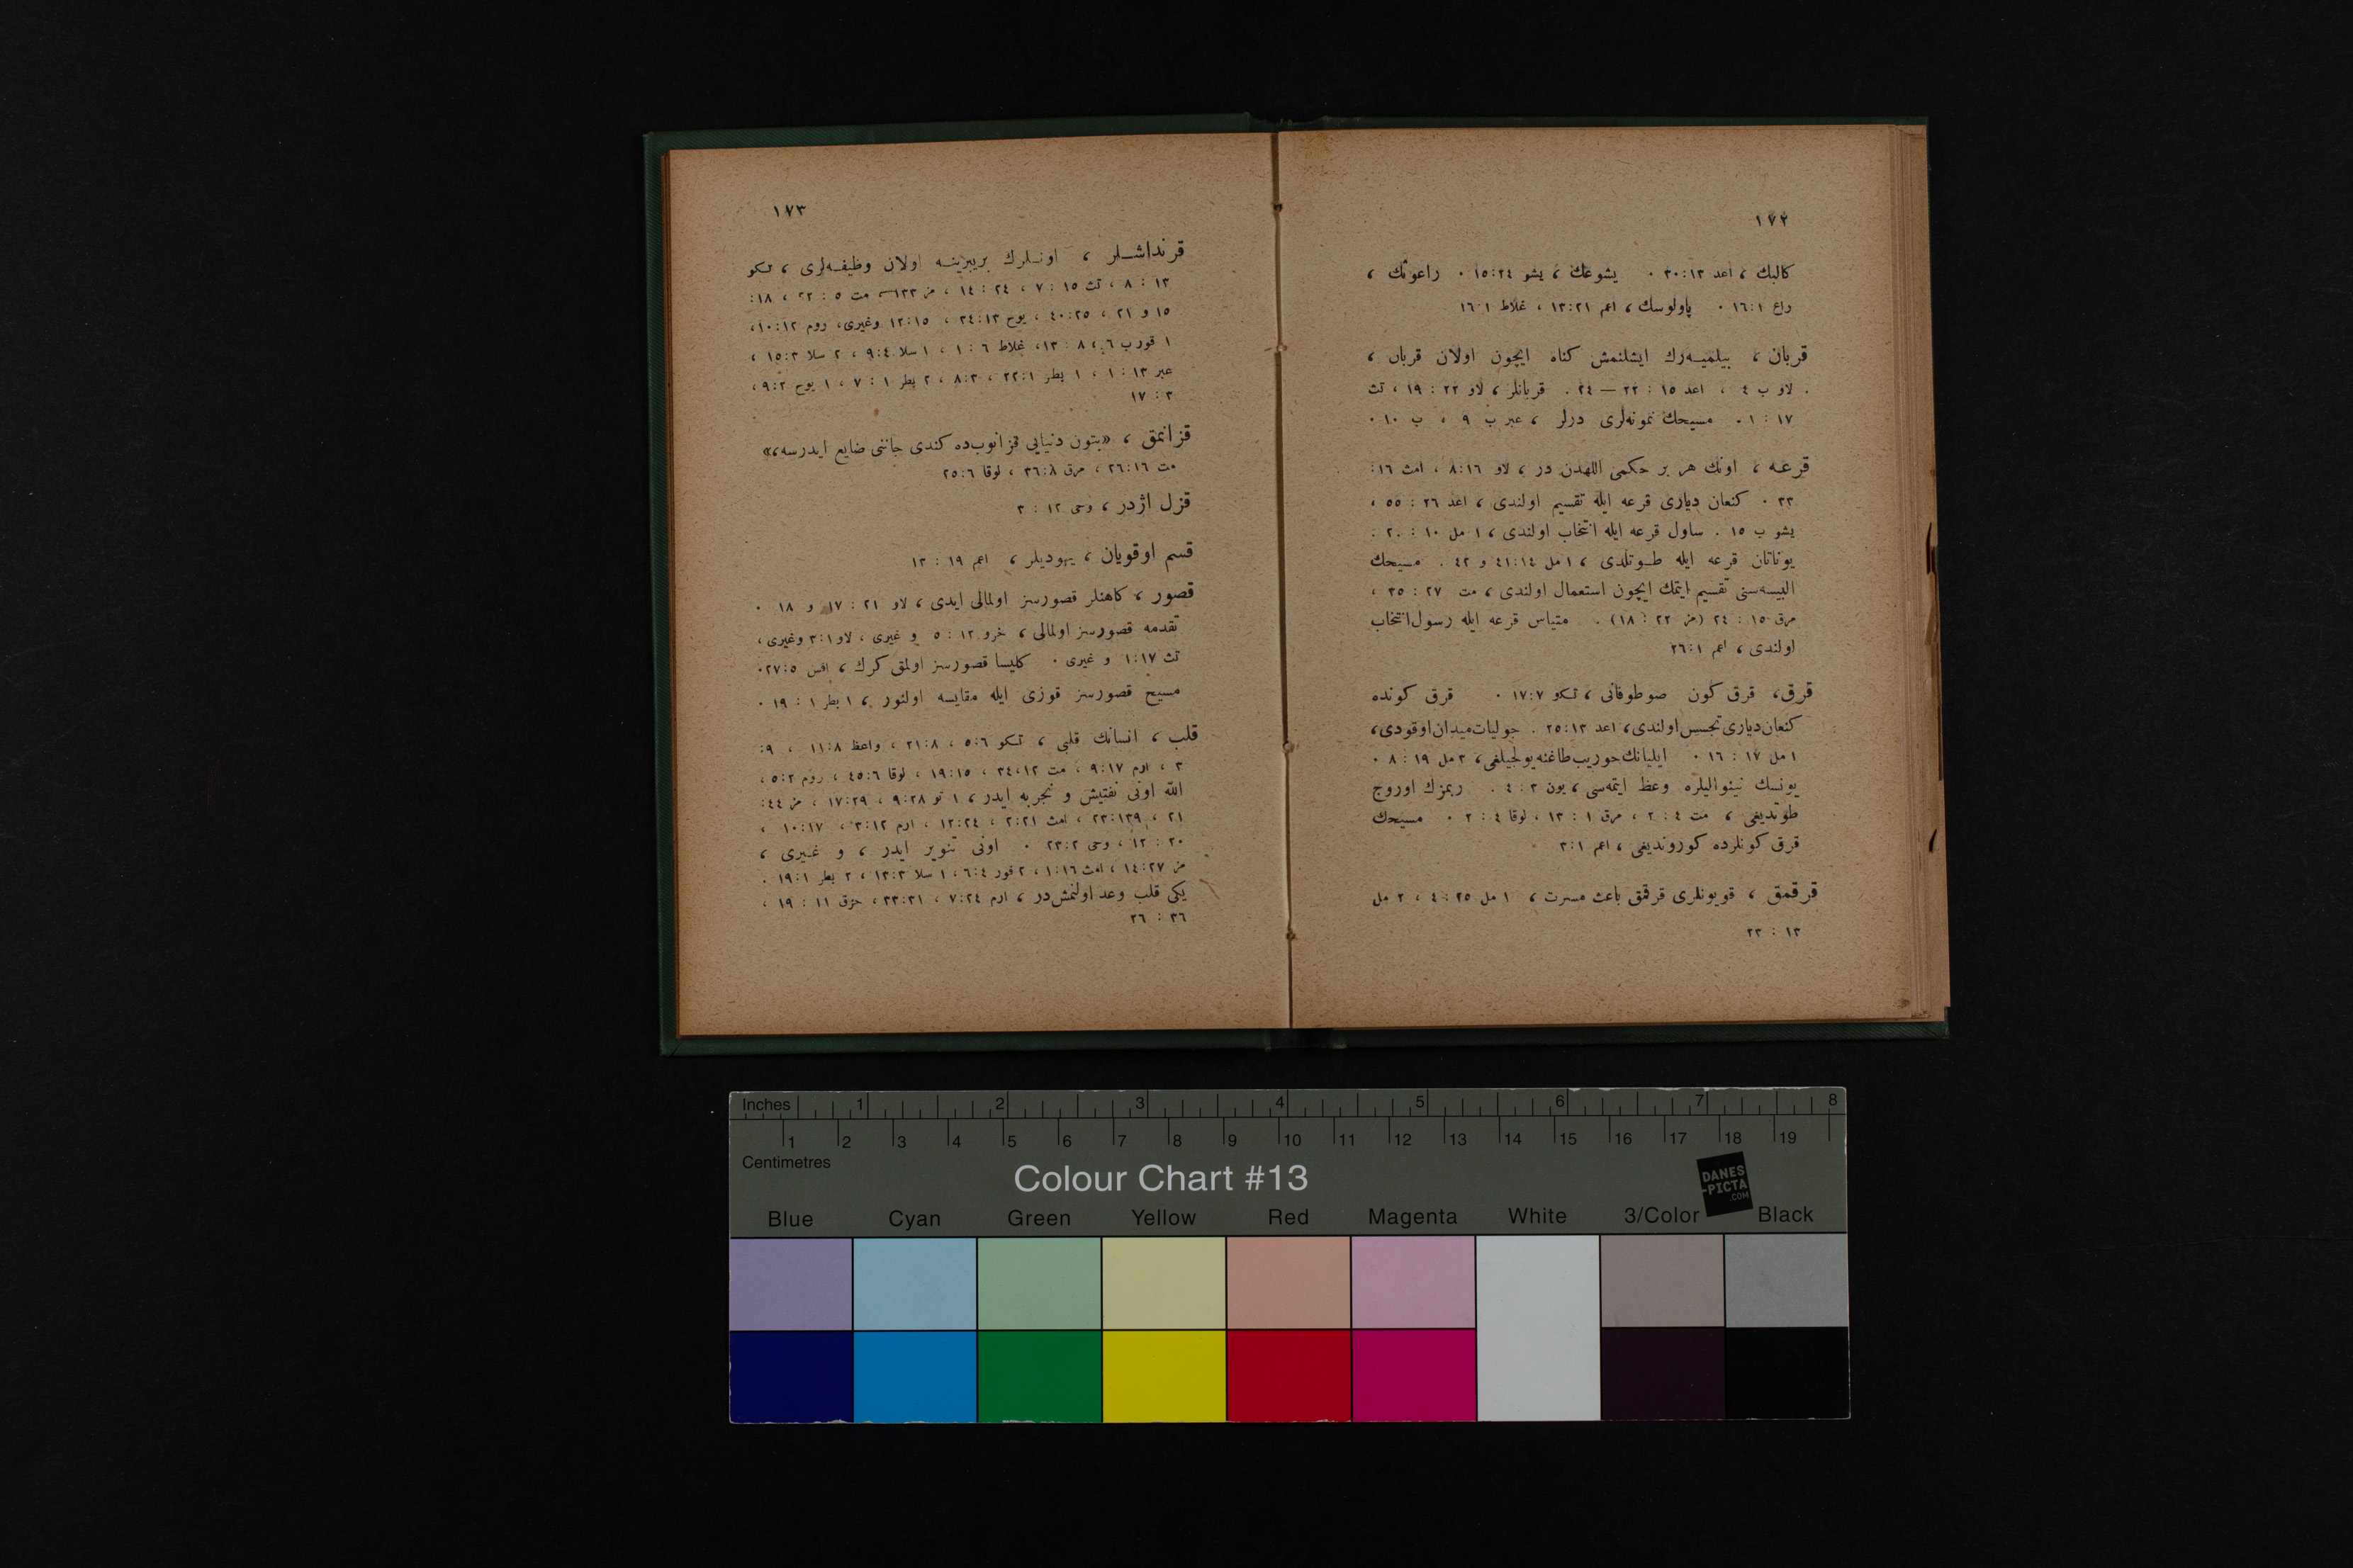 ١٧٢
كالبك ، اعد ١٣:‏٣٠ . يشوعك ، يشو ٢٤:‏١٥ . راعوثك ،
راع ١:‏١٦ . پاولوسك ، اعم ٢١:‏١٣ ، غلاط ١:‏١٦
قربان ، بيلميه‌رك ايشلنمش كناه ايچون اولان قربان ،
لاو ب ٤ ، اعد ١٥ : ٢٢ — ٢٤ . قربانلر ، لاو ٢٢ : ١٩ ، تث
١٧ : ١ . مسيحك نمونه‌لرى درلر ، عبر ب ٩ ، ب ١٠ .
قرعه ، اونك هر بر حكمى اللهدن در ، لاو ١٦:‏٨ ، امث ١٦:
٣٣ . كنعان ديارى قرعه ايله تقسيم اولندى ، اعد ٢٦ : ٥٥ ،
يشو ب ١٥ . ساول قرعه ايله انتخاب اولندى ، ١ مل ١٠ : ٢٠ .
يوناتان قرعه ايله طوتلدى ، ١ مل ١٤:‏٤١ و ٤٢ . مسيحك
البيسه‌سنى تقسيم ايتمك ايچون استعمال اولندى ، مت ٢٧ : ٣٥ ،
مرق ١٥ : ٢٤ (مز ٢٢ : ١٨) . متياس قرعه ايله رسول انتخاب
اولندى ، اعم ١:‏٢٦
قرق ، قرق كون صوطوفانى ، تكو ٧:‏١٧ . قرق كونده
كنعان ديارى تجسس اولندى ، اعد ١٣:‏٢٥ . جوليات ميدان اوقودى ،
١ مل ١٧ : ١٦ . ايليانك حوريب طاغنه يولجيلغى ، ٣ مل ١٩ : ٨ .
يونسك نينواليلره وعظ ايتمه‌سى ، يون ٣ : ٤ . ربمزك اوروج
طوتديغى ، مت ٤ : ٢ ، مرق ١ : ١٣ ، لوقا ٤ : ٢ . مسيحك
قرق كونلرده كورونديغى ، اعم ١:‏٣
قرقمق ، قويونلرى قرقمق باعث مسرت ، ١ مل ٢٥ : ٤ ، ٢ مل
١٣ : ٢٣
١٧٣
قرنداشلر ، اونلرك بربرينه اولان وظيفه‌لرى ، تكو
١٣ : ٨ ، تث ١٥ : ٧ ، ٢٤ : ١٤ ، مز ١٣٣ ، مت ٥ : ٢٢ ، ١٨:
١٥ و ٢١ ، ٢٥:‏٤٠ ، يوح ١٣:‏٣٤ ، ١٥:‏١٢ وغيرى ، روم ١٢:‏١٠ ،
١ قور ب ٦ ، ٨ : ١٣ ، غلاط ٦ : ١ ، ١ سلا ٤:‏٩ ، ٢ سلا ٣:‏١٥ ،
عبر ١٣ : ١ ، ١ بطر ١:‏٢٢ ، ٣:‏٨ ، ٢ بطر ١ : ٧ ، ١ يوح ٢:‏٩ ،
٣ : ١٧
قزانمق ، «بتون دنيايى قزانوب‌ده كندى جاننى ضايع ايدرسه ،»
مت ١٦:‏٢٦ ، مرق ٨:‏٣٦ ، لوقا ٦:‏٢٥
قزل اژدر ، وحى ١٢ : ٣
قسم اوقويان ، يهوديلر ، اعم ١٩ : ١٣
قصور ، كاهنلر قصورسز اولمالى ايدى ، لاو ٢١ : ١٧ و ١٨ .
تقدمه قصورسز اولمالى ، خرو ١٢ : ٥ و غيرى ، لاو ١:‏٣ وغيرى ،
تث ١٧:‏١ و غيرى . كليسا قصورسز اولمق كرك ، افس ٥:‏٢٧ .
مسيح قصورسز قوزى ايله مقايسه اولنور ، ١ بطر ١ : ١٩ .
قلب ، انسانك قلبى ، تكو ٦:‏٥ ، ٨:‏٢١ ، واعظ ٨:‏١١ ، ٩:
٣ ، ارم ١٧:‏٩ ، مت ١٢،‏٣٤ ، ١٥:‏١٩ ، لوقا ٦:‏٤٥ ، روم ٢:‏٥ ،
الله اونى تفتيش و تجربه ايدر ، ١ تو ٢٨:‏٩ ، ٢٩:‏١٧ ، مز ٤٤:
٢١ ، ١٣٩:‏٢٣ ، امث ٢١:‏٢ ، ٢٤:‏١٢ ، ارم ١٢:‏٣ ، ١٧:‏١٠ ،
٢٠ : ١٢ ، وحى ٢:‏٢٣ . اونى تنوير ايدر ، و غيرى ،
مز ٢٧:‏١٤ ، امث ١٦:‏١ ، ٢ قور ٤:‏٦ ، ١ سلا ٣:‏١٣ ، ٢ بطر ١:‏١٩ .
يكى قلب وعد اولنمش‌در ، ارم ٢٤:‏٧ ، ٣١:‏٣٣ ، حزق ١١ : ١٩ ،
٣٦ : ٢٦
Inches 1 2 3 4 5 6 7 8
1 2 3 4 5 6 7 8 9 10 11 12 13 14 15 16 17 18 19
Centimetres
Colour Chart #13
DANES
-PICTA
.COM
Blue Cyan Green Yellow Red Magenta White 3/Color Black